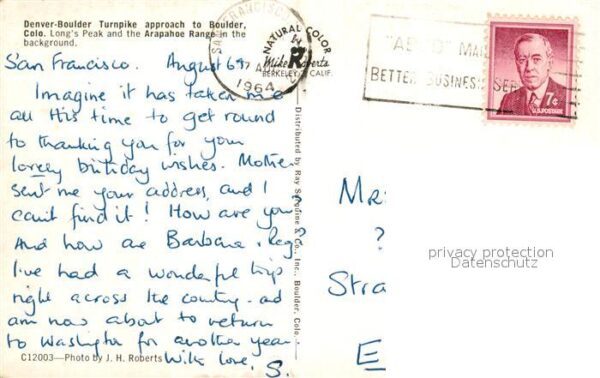 Denver-Boulder Turnpike approach to Boulder,
Colo. Long's Peak and the Arapahoe Range in the
background.
San Francisco. August 6th
Imagine it has taken me
all this time to get round
to thanking you for your
lovely birthday wishes. Mother
sent me your address, and I
can't find it! How are you?
And how are Barbara & Reg.
I've had a wonderful trip
right across the country - and
am now about to return
to Washington for another year
With love, S.
C12003—Photo by J. H. Roberts
SAN FRANCISCO
AUG
1964
NATURAL COLOR
Mike Roberts
BERKELEY CALIF.
Distributed by Ray & Co., Inc., Boulder, Colo.
MAIL
BETTER BUSINESS
7¢
U.S. POSTAGE
Mr
?
Stra
E
privacy protection
Datenschutz